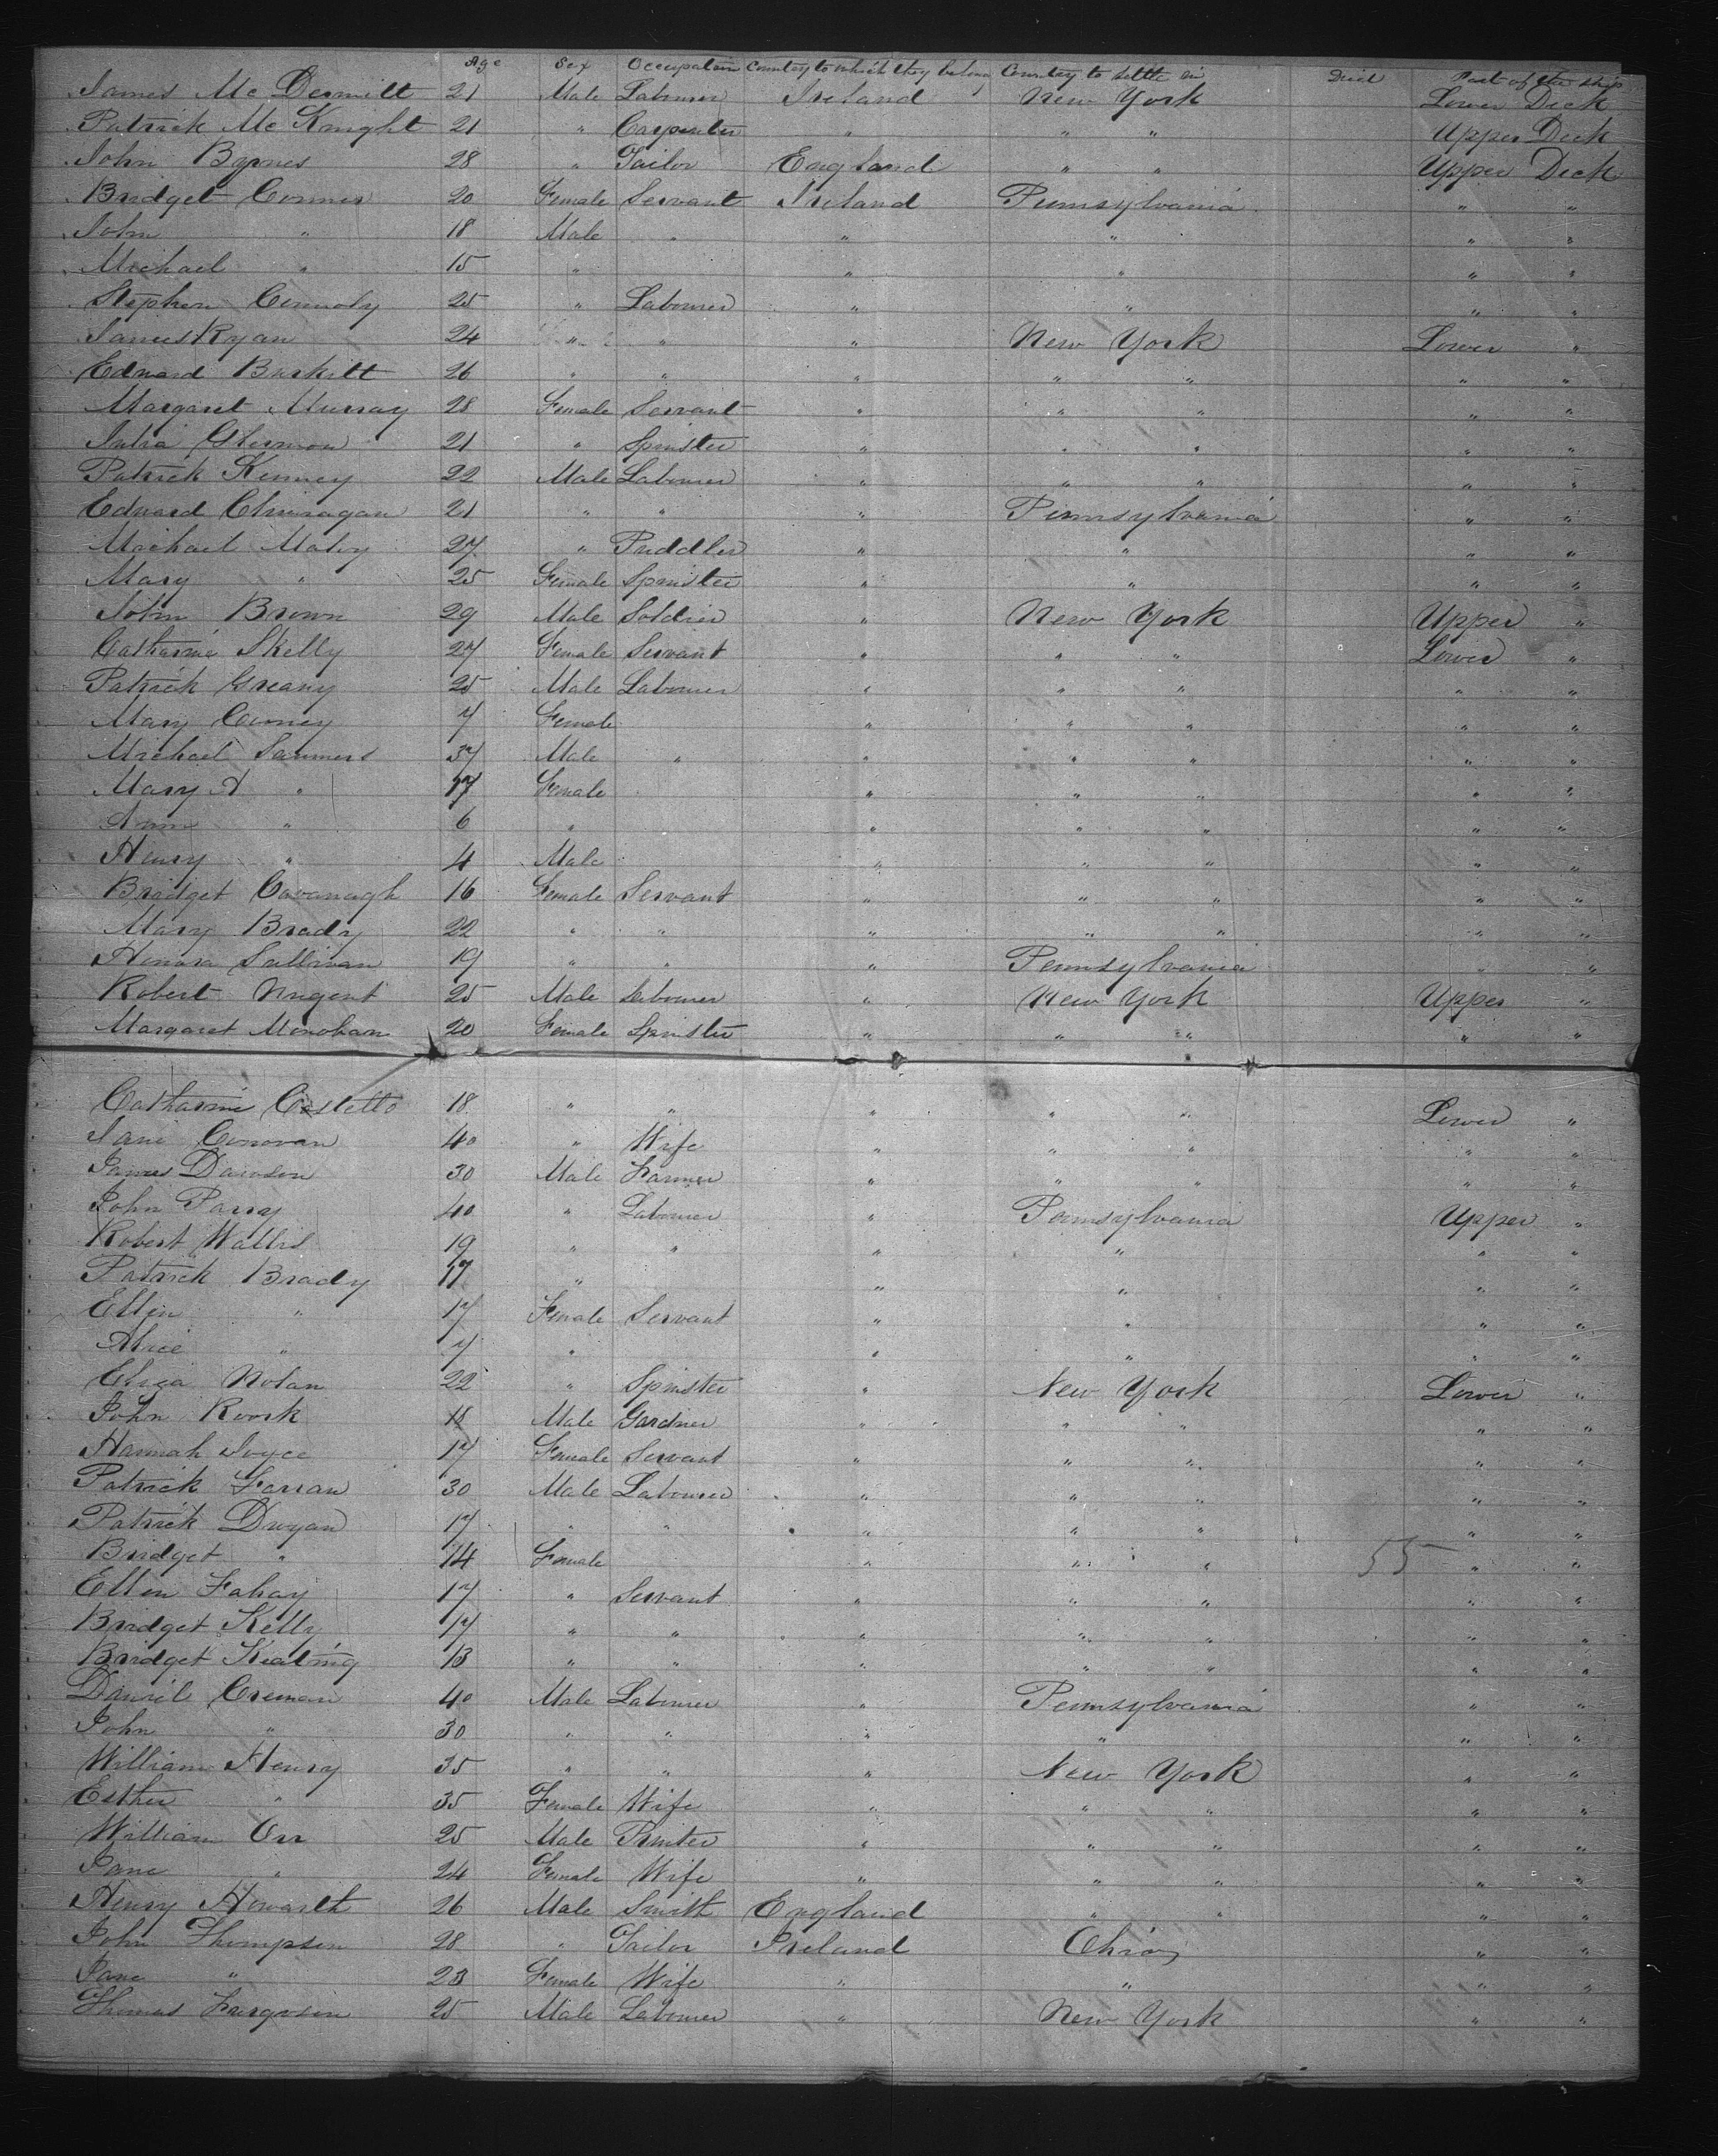 Age Sex Occupation Country to which they belong Country to settle in Died Part of the ship
James Mc Dermitt 21 Male Labourer Ireland New York Lower Deck
Patrick Mc Knight 21 " Carpenter " " " Upper Deck
John Byrnes 28 " Tailor England " " Upper Deck
Bridget Connor 20 Female Servant Ireland Pennsylvania " "
John " 18 Male " " " " "
Michael " 15 " " " " "
Stephen Connoly 25 " Labourer " " " "
James Ryan 24 " " " New York Lower "
Edward Buskitt 26 " " " " " " "
Margaret Murray 28 Female Servant " " " " "
Julia 21 " Spinster " " " " "
Patrick Kenney 22 Male Labourer " " " " "
Edward 21 " " " Pennsylvania " "
Michael Maley 27 " Puddler " " " "
Mary " 25 Female Spinster " " " "
John Brown 29 Male Soldier " New York Upper "
Catharine Skelly 27 Female Servant " " " Lower "
Patrick Greany 25 Male Labourer " " " " "
Mary Conney 7 Female " " " " "
Michael Sammers 37 Male " " " " " "
Mary A " 17 Female " " " " "
Ann " 6 " " " " " "
Henry " 4 Male " " " " "
Bridget Cavanagh 16 Female Servant " " " " "
Mary Brady 22 " " " " " " "
Honora Sullivan 19 " " " Pennsylvania " "
Robert Nugent 25 Male Labourer " New York Upper "
Margaret Monohan 20 Female Spinster " " " " "
Catharine Costello 18 " " " " " Lower "
Jane Conovan 40 " Wife " " " " "
James Dawson 30 Male Farmer " " " " "
John Parry 40 " Labourer " Pennsylvania Upper "
Robert Wallis 19 " " " " " "
Patrick Brady 17 " " " " "
Ellen " 17 Female Servant " " " "
Alice " 7 " " " " "
Eliza Nolan 22 " Spinster " New York Lower "
John Roork 18 Male Gardner " " " " "
Hannah Joyce 17 Female Servant " " " " "
Patrick Farran 30 Male Labourer " " " " "
Patrick Dwyan 17 " " " " " " "
Bridget " 14 Female " " " 55 " "
Ellen Fahay 17 " Servant " " " " "
Bridget Kelly 17 " " " " " " "
Bridget Keating 13 " " " " " " "
Daniel Creman 40 Male Labourer " Pennsylvania " "
John " 30 " " " " " "
William Henry 35 " " " New York " "
Esther " 35 Female Wife " " " " "
William Orr 25 Male Printer " " " " "
Jane " 24 Female Wife " " " " "
Henry Howarth 26 Male Smith England " " " "
John Thompson 28 " Tailor Ireland Ohio " "
Jane " 23 Female Wife " " " "
Thomas Ferguson 25 Male Labourer " New York " "